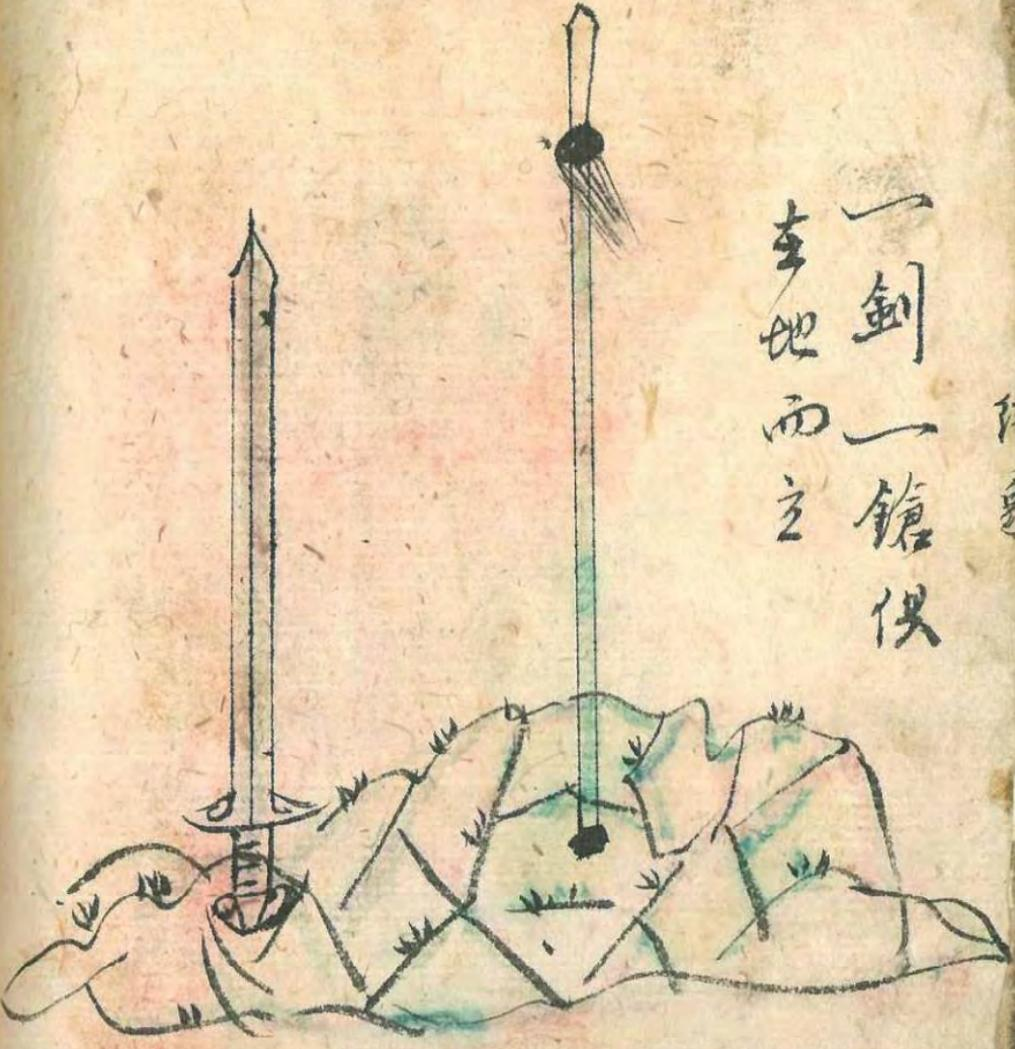 一劍一鎗俱
在地而立